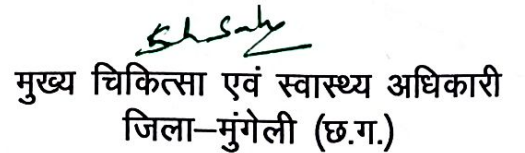 मुख्य चिकित्सा एवं स्वास्थ्य अधिकारी
जिला–मुंगेली (छ.ग.)